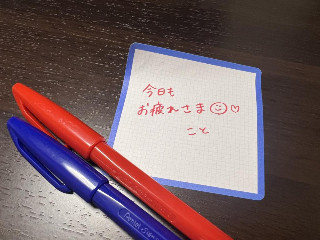 今日も
お疲れさま☺♡
こと